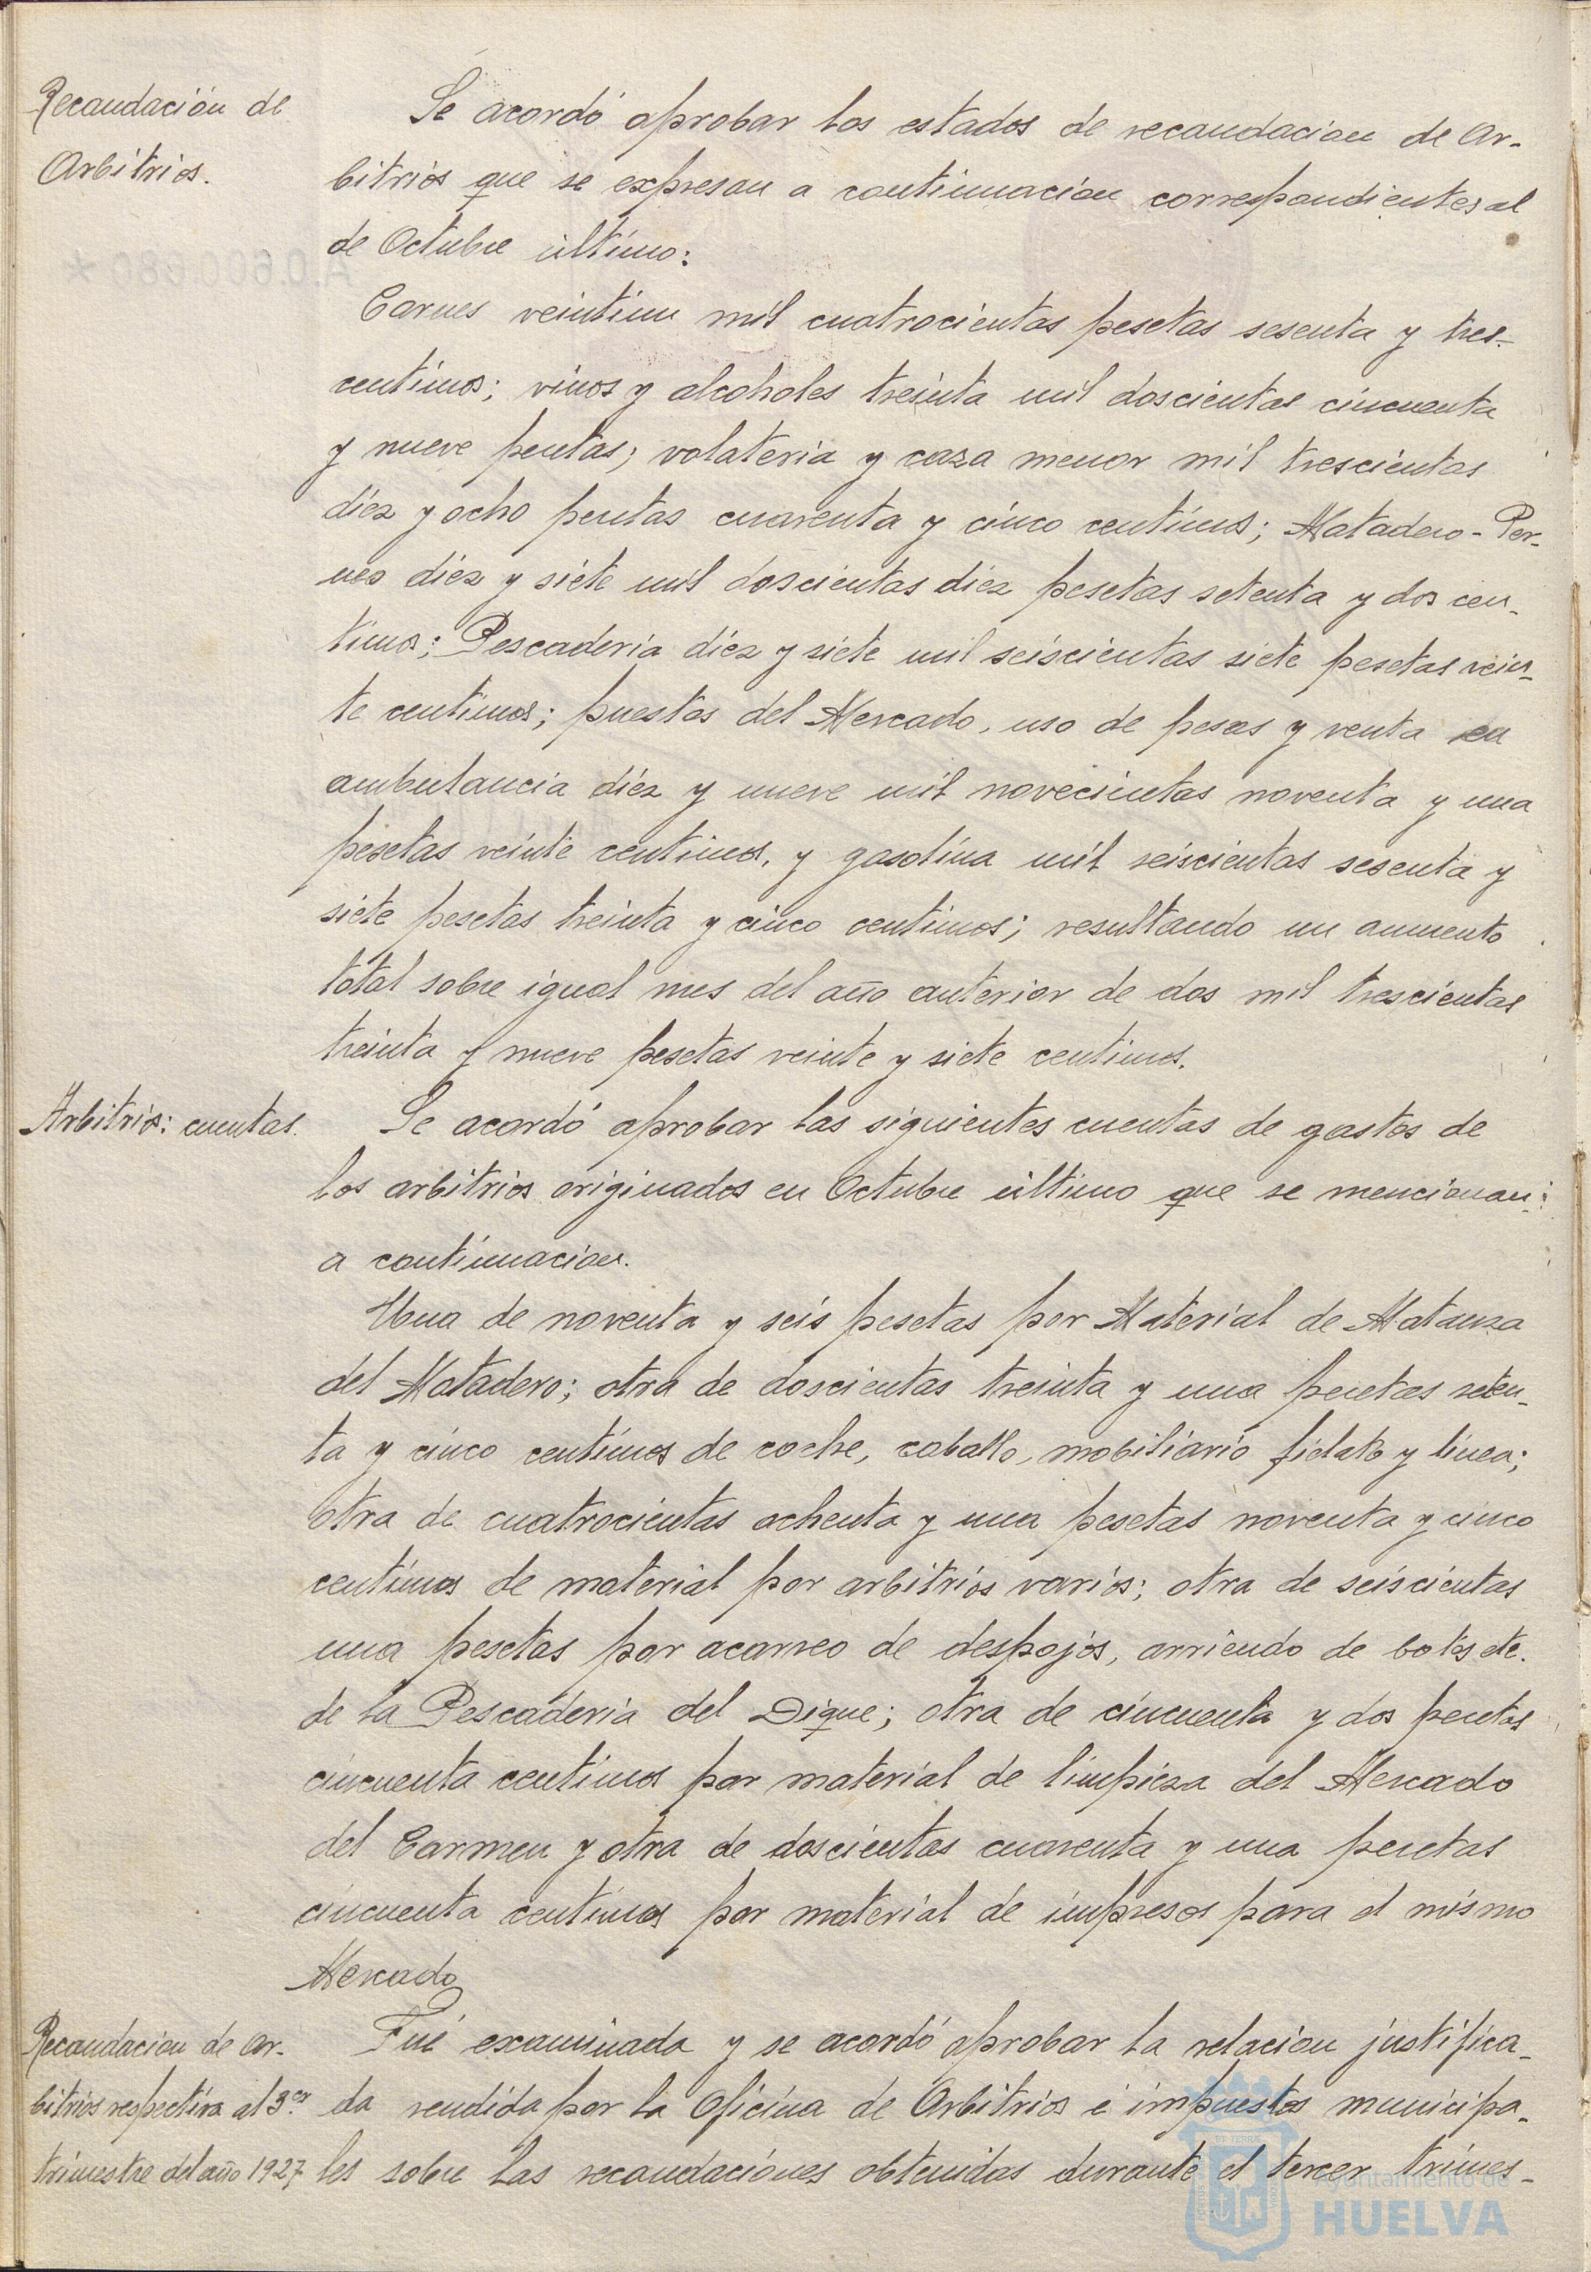 Recaudación de
Arbitrios.
Se acordó aprobar los estados de recaudacion de Ar-
bitrios que se expresan a continuacion correspondientes al
de Octubre último:
Carnes veintiun mil cuatrocientas pesetas sesenta y tres
centimos; vinos y alcoholes treinta mil doscientas cincuenta
y nueve pesetas; volateria y caza menor mil trescientas
diez y ocho pesetas cuarenta y cinco centimos; Matadero-Per-
nes diez y siete mil doscientas diez pesetas setenta y dos cen-
timos; Pescaderia diez y siete mil seiscientas siete pesetas vein-
te centimos; puestos del Mercado, uso de pesas y venta en
ambulancia diez y nueve mil novecientas noventa y una
pesetas veinte centimos, y gasolina mil seiscientas sesenta y
siete pesetas treinta y cinco centimos; resultando un aumento
total sobre igual mes del año anterior de dos mil trescientas
treinta y nueve pesetas veinte y siete centimos.
Arbitrios: cuentas.
Se acordó aprobar las siguientes cuentas de gastos de
los arbitrios originados en Octubre último que se mencionan
a continuacion.
Una de noventa y seis pesetas por Material de Matanza
del Matadero; otra de doscientas treinta y una pesetas seten-
ta y cinco centimos de coche, caballo, mobiliario fielato y linea;
otra de cuatrocientas ochenta y una pesetas noventa y cinco
centimos de material por arbitrios varios; otra de seiscientas
una pesetas por acarreo de despojos, arriendo de botes etc.
de la Pescaderia del Dique; otra de cincuenta y dos pesetas
cincuenta centimos por material de limpieza del Mercado
del Carmen y otra de doscientas cuarenta y una pesetas
cincuenta centimos por material de impresos para el mismo
Mercado
Recaudacion de ar-
bitrios respectiva al 3er
trimestre del año 1927
Fué examinada y se acordó aprobar la relacion justifica-
da rendida por la Oficina de Arbitrios é impuestos municipa-
les sobre las recaudaciones obtenidas durante el tercer trimes-
Ayuntamiento de
HUELVA